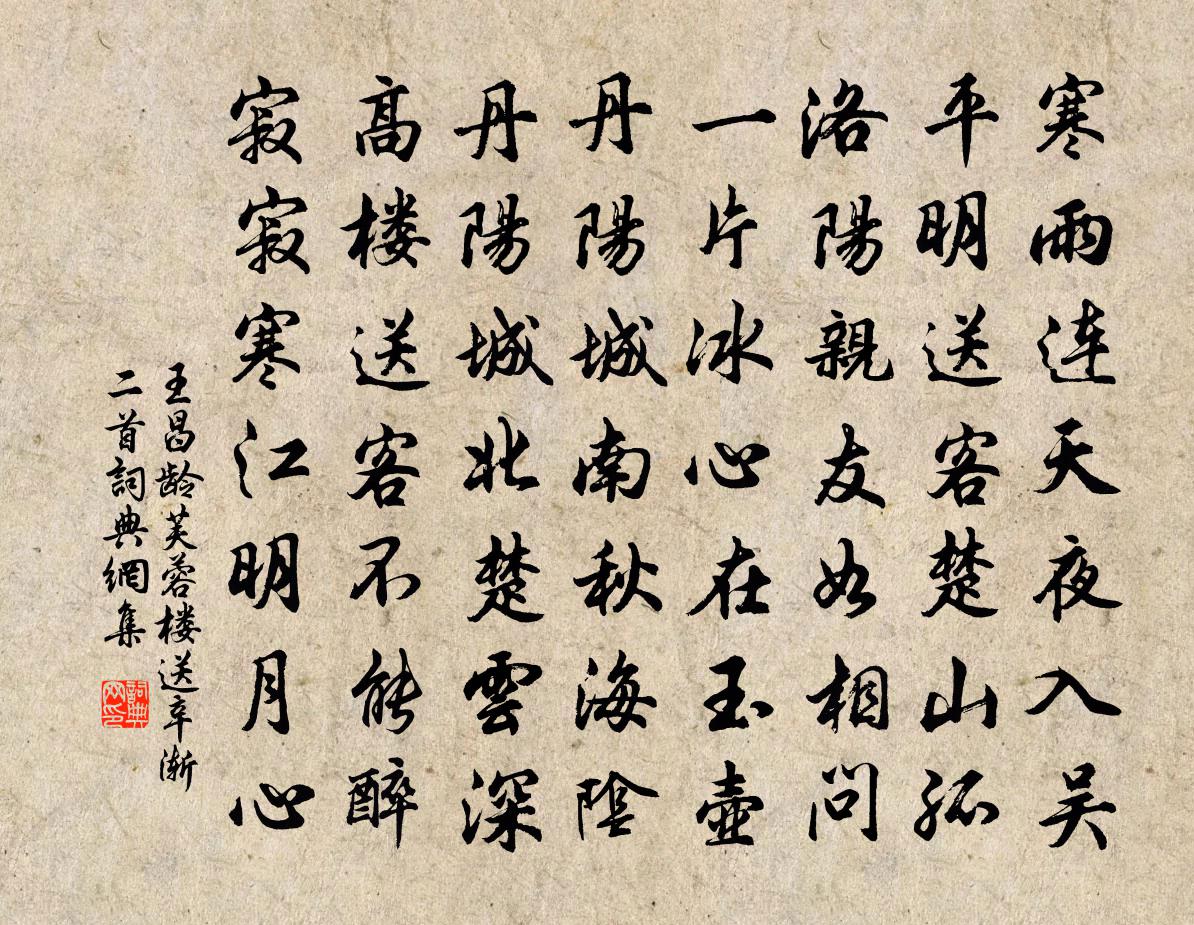 寒雨连天夜入吴
平明送客楚山孤
洛陽親友如相問
一片冰心在玉壺
丹陽城南秋海陰
丹陽城北楚雲深
高楼送客不能醉
寂寂寒江明月心
王昌龄芙蓉楼送辛渐
二首詞典網集
詞典
网印